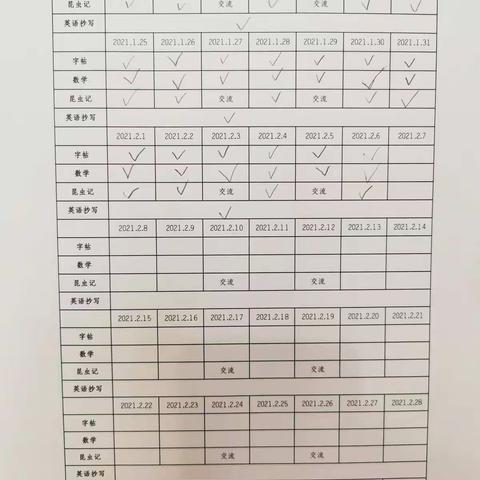 昆虫记 交流 交流
英语抄写
2021.1.25 2021.1.26 2021.1.27 2021.1.28 2021.1.29 2021.1.30 2021.1.31
字帖
数学
昆虫记 交流 交流
英语抄写
2021.2.1 2021.2.2 2021.2.3 2021.2.4 2021.2.5 2021.2.6 2021.2.7
字帖
数学
昆虫记 交流 交流
英语抄写
2021.2.8 2021.2.9 2021.2.10 2021.2.11 2021.2.12 2021.2.13 2021.2.14
字帖
数学
昆虫记 交流 交流
英语抄写
2021.2.15 2021.2.16 2021.2.17 2021.2.18 2021.2.19 2021.2.20 2021.2.21
字帖
数学
昆虫记 交流 交流
英语抄写
2021.2.22 2021.2.23 2021.2.24 2021.2.25 2021.2.26 2021.2.27 2021.2.28
字帖
数学
昆虫记 交流 交流
英语抄写